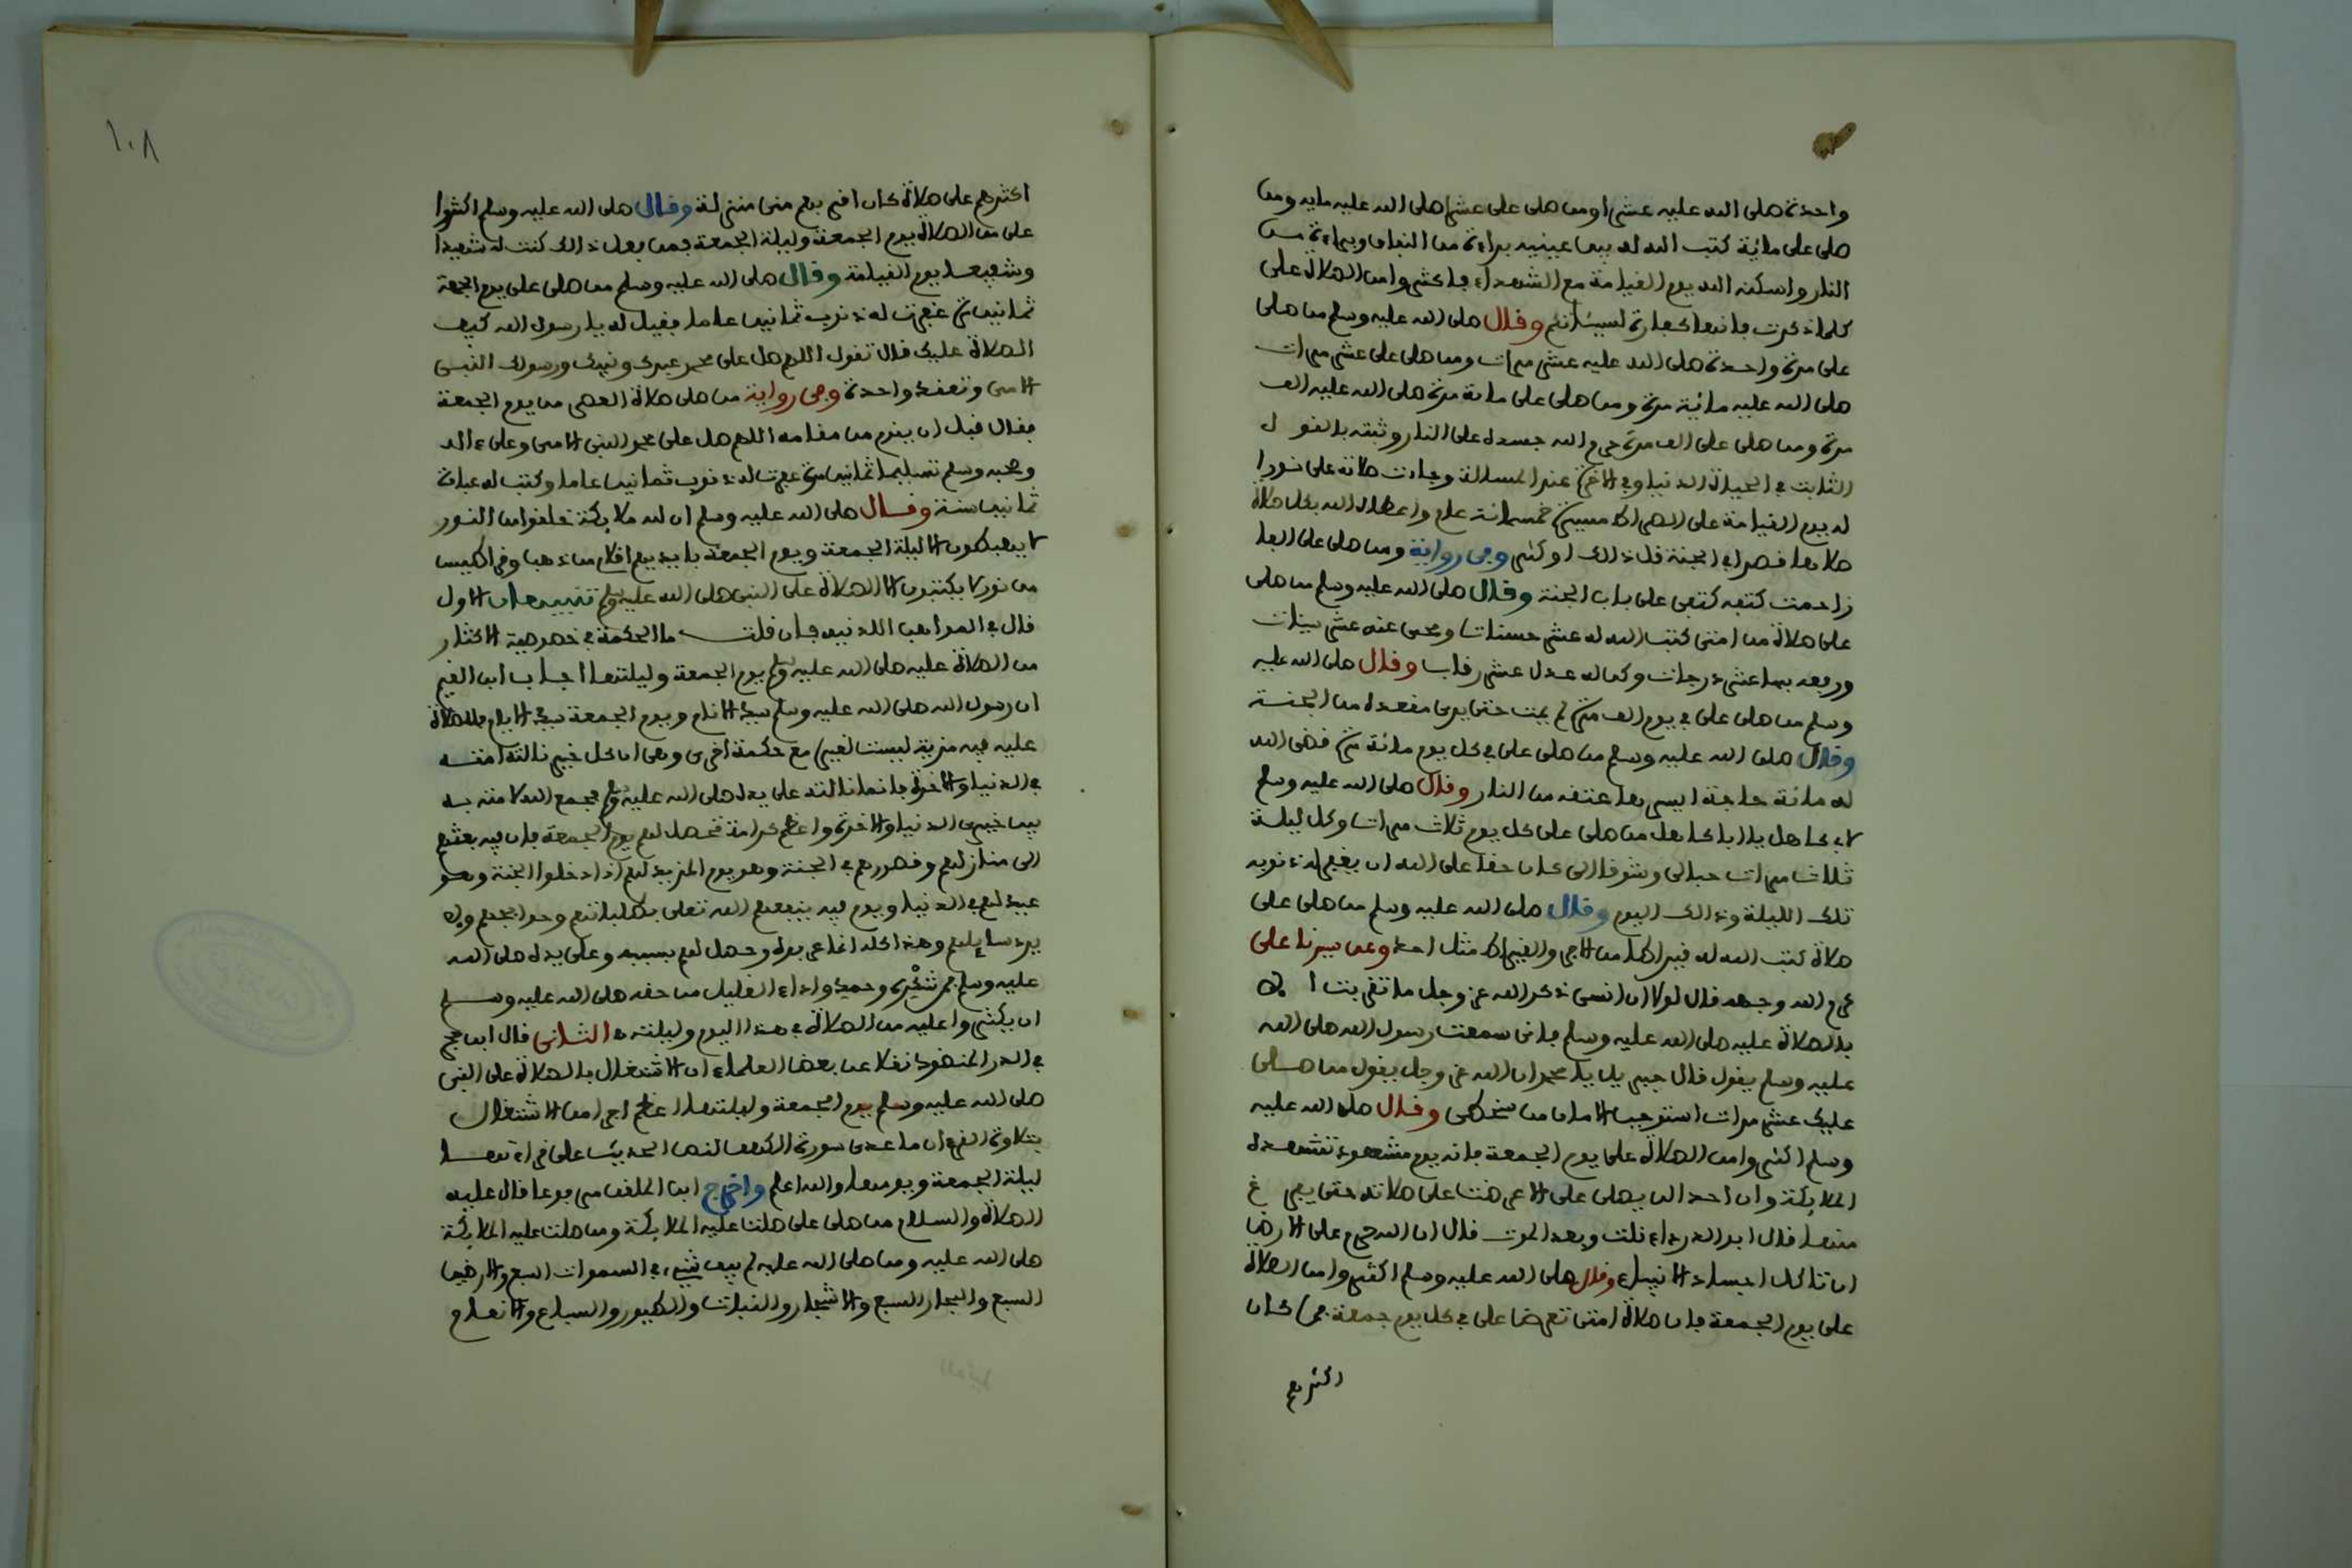 واحدة صلى الله عليه عشرا ومن صلى على عشرا صلى الله عليه ماية ومن
صلى على مائة كتب الله له بين عينيه براءة من النفاق وبراءة من
النار واسكنه الله يوم القيامة مع الشهداء فاكثروا من الصلاة على
كلما ذكرت فانها كفارة لسيئاتكم وقال صلى الله عليه وسلم من صلى
على مرة واحدة صلى الله عليه عشر مرات ومن صلى على عشر مرات
صلى الله عليه مائة مرة ومن صلى على مائة مرة صلى الله عليه الف
مرة ومن صلى على الف مرة حرم الله جسده على النار وثبته بالقول
الثابت في الحياة الدنيا وفي الاخرة عند المسالة وجاءت صلاته على نورا
له يوم القيامة على الصراط مسيرة خمسمائة عام واعطاه الله بكل صلاة
صلاها قصرا في الجنة قل ذلك او كثر وفى رواية ومن صلى على الفا
زاحمت كتفه كتفى على باب الجنة وقال صلى الله عليه وسلم من صلى
على صلاة من امتى كتب الله له عشر حسنات ومحى عنه عشر سيئات
ورفعه بها عشر درجات وكن له عدل عشر رقاب وقال صلى الله عليه
وسلم من صلى على في يوم الف مرة لم يمت حتى يرى مقعده من الجنة
وقال صلى الله عليه وسلم من صلى على في كل يوم مائة مرة قضى الله
له مائة حاجة ايسرها عتقه من النار وقال صلى الله عليه وسلم
لابى كاهل يا ابا كاهل من صلى على كل يوم ثلاث مرات وكل ليلة
ثلاث مرات حبا لى وشوقا الى كان حقا على الله ان يغفر له ذنوبه
تلك الليلة وذالك اليوم وقال صلى الله عليه وسلم من صلى على
صلاة كتب الله له قيراطا من الاجر والقيراط مثل احد وعن سيدنا على
كرم الله وجهه قال لولا ان انسى ذكر الله عز وجل ما تقربت ا
بالصلاة عليه صلى الله عليه وسلم فانى سمعت رسول الله صلى الله
عليه وسلم يقول قال جبريل يا محمد ان الله عز وجل يقول من صلى
عليك عشر مرات استوجب الامان من سخطى وقال صلى الله عليه
وسلم اكثروا من الصلاة على يوم الجمعة فانه يوم مشهود تشهده
الملائكة وان احدا لن يصلى على الا عرضت على صلاته حتى يفرغ
منها قال ابو الدرداء قلت وبعد الموت قال ان الله حرم على الارض
ان تاكل اجساد الانبياء وقال صلى الله عليه وسلم اكثروا من الصلاة
على يوم الجمعة فان صلاة امتى تعرض على في كل يوم جمعة فمن كان
اكثرهم
١٠٨
اكثرهم على صلاة كان اقربهم منى منزلة وقال صلى الله عليه وسلم اكثروا
على من الصلاة يوم الجمعة وليلة الجمعة فمن فعل ذالك كنت له شهيدا
وشفيعا يوم القيامة وقال صلى الله عليه وسلم من صلى على يوم الجمعة
ثمانين مرة غفرت له ذنوب ثمانين عاما فقيل له يا رسول الله كيف
الصلاة عليك قال تقول اللهم صل على محمد عبدك ونبيك ورسولك النبى
الامى وتعقد واحدة وفى رواية من صلى صلاة العصر من يوم الجمعة
فقال قبل ان يقوم من مقامه اللهم صل على محمد النبى الامى وعلى ءاله
وصحبه وسلم تسليما ثمانين مرة غفرت له ذنوب ثمانين عاما وكتب له عبادة
ثمانين سنة وقال صلى الله عليه وسلم ان لله ملائكة خلقوا من النور
لا يهبطون الا ليلة الجمعة ويوم الجمعة بايديهم اقلام من ذهب وقراطيس
من نور لا يكتبون الا الصلاة على النبى صلى الله عليه وسلم تنبيهان الاول
قال في المواهب اللدنيه فان قلت ما الحكمة في خصوصية الاكثار
من الصلاة عليه صلى الله عليه وسلم يوم الجمعة وليلتها اجاب ابن القيم
ان رسول الله صلى الله عليه وسلم سيد الانام ويوم الجمعة سيد الايام فللصلاة
عليه فيه مزية ليست لغيره مع حكمة اخرى وهى ان كل خير نالته امته
في الدنيا والاخرة فانما نالته على يده صلى الله عليه وسلم فجمع الله لامته به
بين خيرى الدنيا والاخرة واعظم كرامة تحصل لهم يوم الجمعة فان فيه بعثهم
الى منازلهم وقصورهم في الجنة وهو يوم المزيد لهم اذا دخلوا الجنة وهو
عيد لهم في الدنيا ويوم فيه ينفعهم الله تعلى بطلباتهم وحوايجهم ولا
يرد سايلهم وهذا كله انما عرفوه وحصل لهم بسببه وعلى يده صلى الله
عليه وسلم فمن شكره وحمده واداء القليل من حقه صلى الله عليه وسلم
ان يكثروا عليه من الصلاة في هذا اليوم وليلته الثانى قال ابن حجر
في الدر المنضود نقلا عن بعض العلماء ان الاشتغال بالصلاة على النبى
صلى الله عليه وسلم يوم الجمعة وليلتها اعظم اجرا من الاشتغال
بتلاوة القرءان ما عدى سورة الكهف لنص الحديث على قراءتها
ليلة الجمعة ويومها والله اعلم واخرج ابن الملقن مرفوعا قال عليه
الصلاة والسلام من صلى على صلت عليه الملائكة ومن صلت عليه الملائكة
صلى الله عليه ومن صلى الله عليه لم يبق شىء في السموات السبع والارضين
السبع والبحار السبع والاشجار والنبات والطيور والسباع والانعام